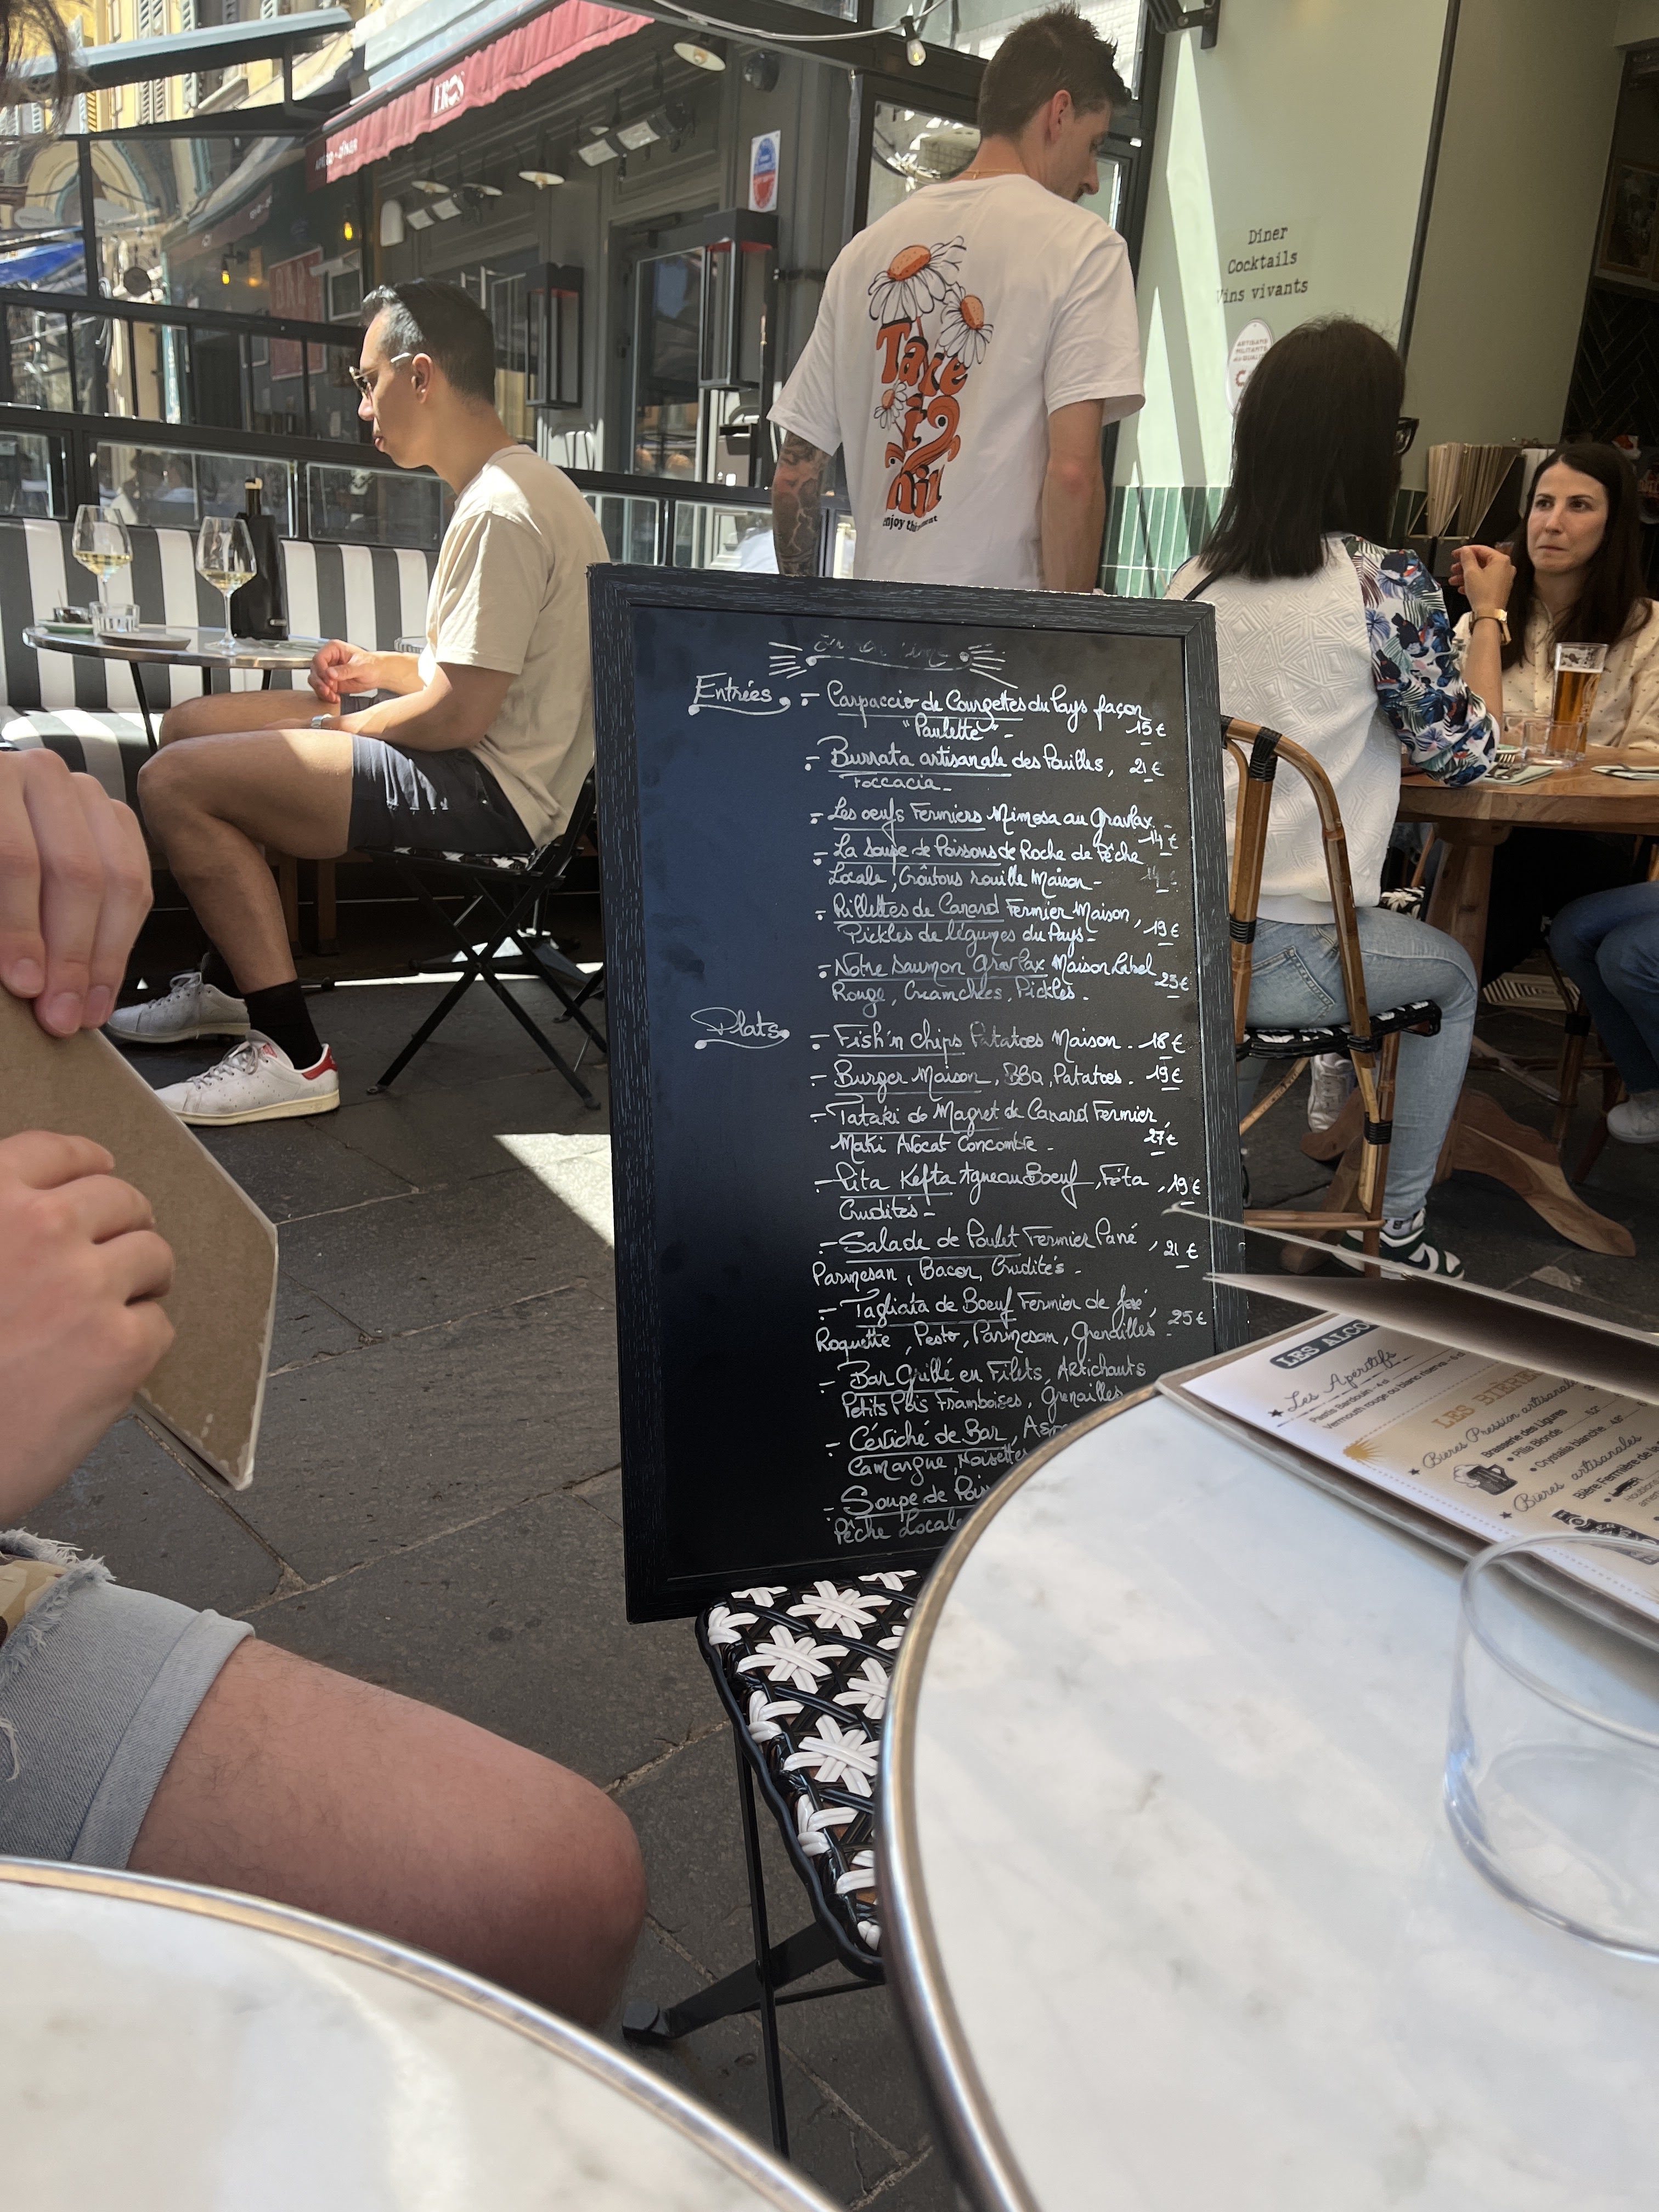 EROS
APÉRO - DÎNER
Dîner
Cocktails
Vins vivants
Take
it
enjoy
Entrées
- Carpaccio de Courgettes du Pays façon
"Paulette" - 15€
- Burrata artisanale des Pouilles, 21€
Foccacia -
- Les oeufs Fermiers Mimosa au Gravlax.
14€
- La Soupe de Poissons de Roche de Pêche
Locale, Croûtons rouille Maison - 14€
- Rillettes de Canard Fermier Maison,
Pickles de légumes du Pays - 19€
- Notre Saumon Gravlax Maison Label
Rouge, Pickles. 23€
Plats
- Fish'n chips Patatoes Maison. 18€
- Burger Maison, BBQ, Patatoes. 19€
- Tataki de Magret de Canard Fermier,
Maki Avocat Concombre - 27€
- Pita Kefta Agneau Boeuf, Féta, 19€
Crudités -
- Salade de Poulet Fermier Pané, 21€
Parmesan, Bacon, Crudités -
- Tagliata de Boeuf Fermier de José,
Roquette, Pesto, Parmesan, Grenailles - 25€
- Bar Grillé en Filets, Artichauts
Petits Pois Framboises, Grenailles
- Céviché de Bar,
Camargue, Noisettes
- Soupe de
Pêche Locale
LES ALCO
Les Apéritifs
Pastis
Vermouth rouge ou blanc
LES BIÈRE
Bières Pression artisanal
Brasserie des Ligures
• Pilla Blonde
• Crystalla blanche
Bières artisanales
Bière Fermière de la